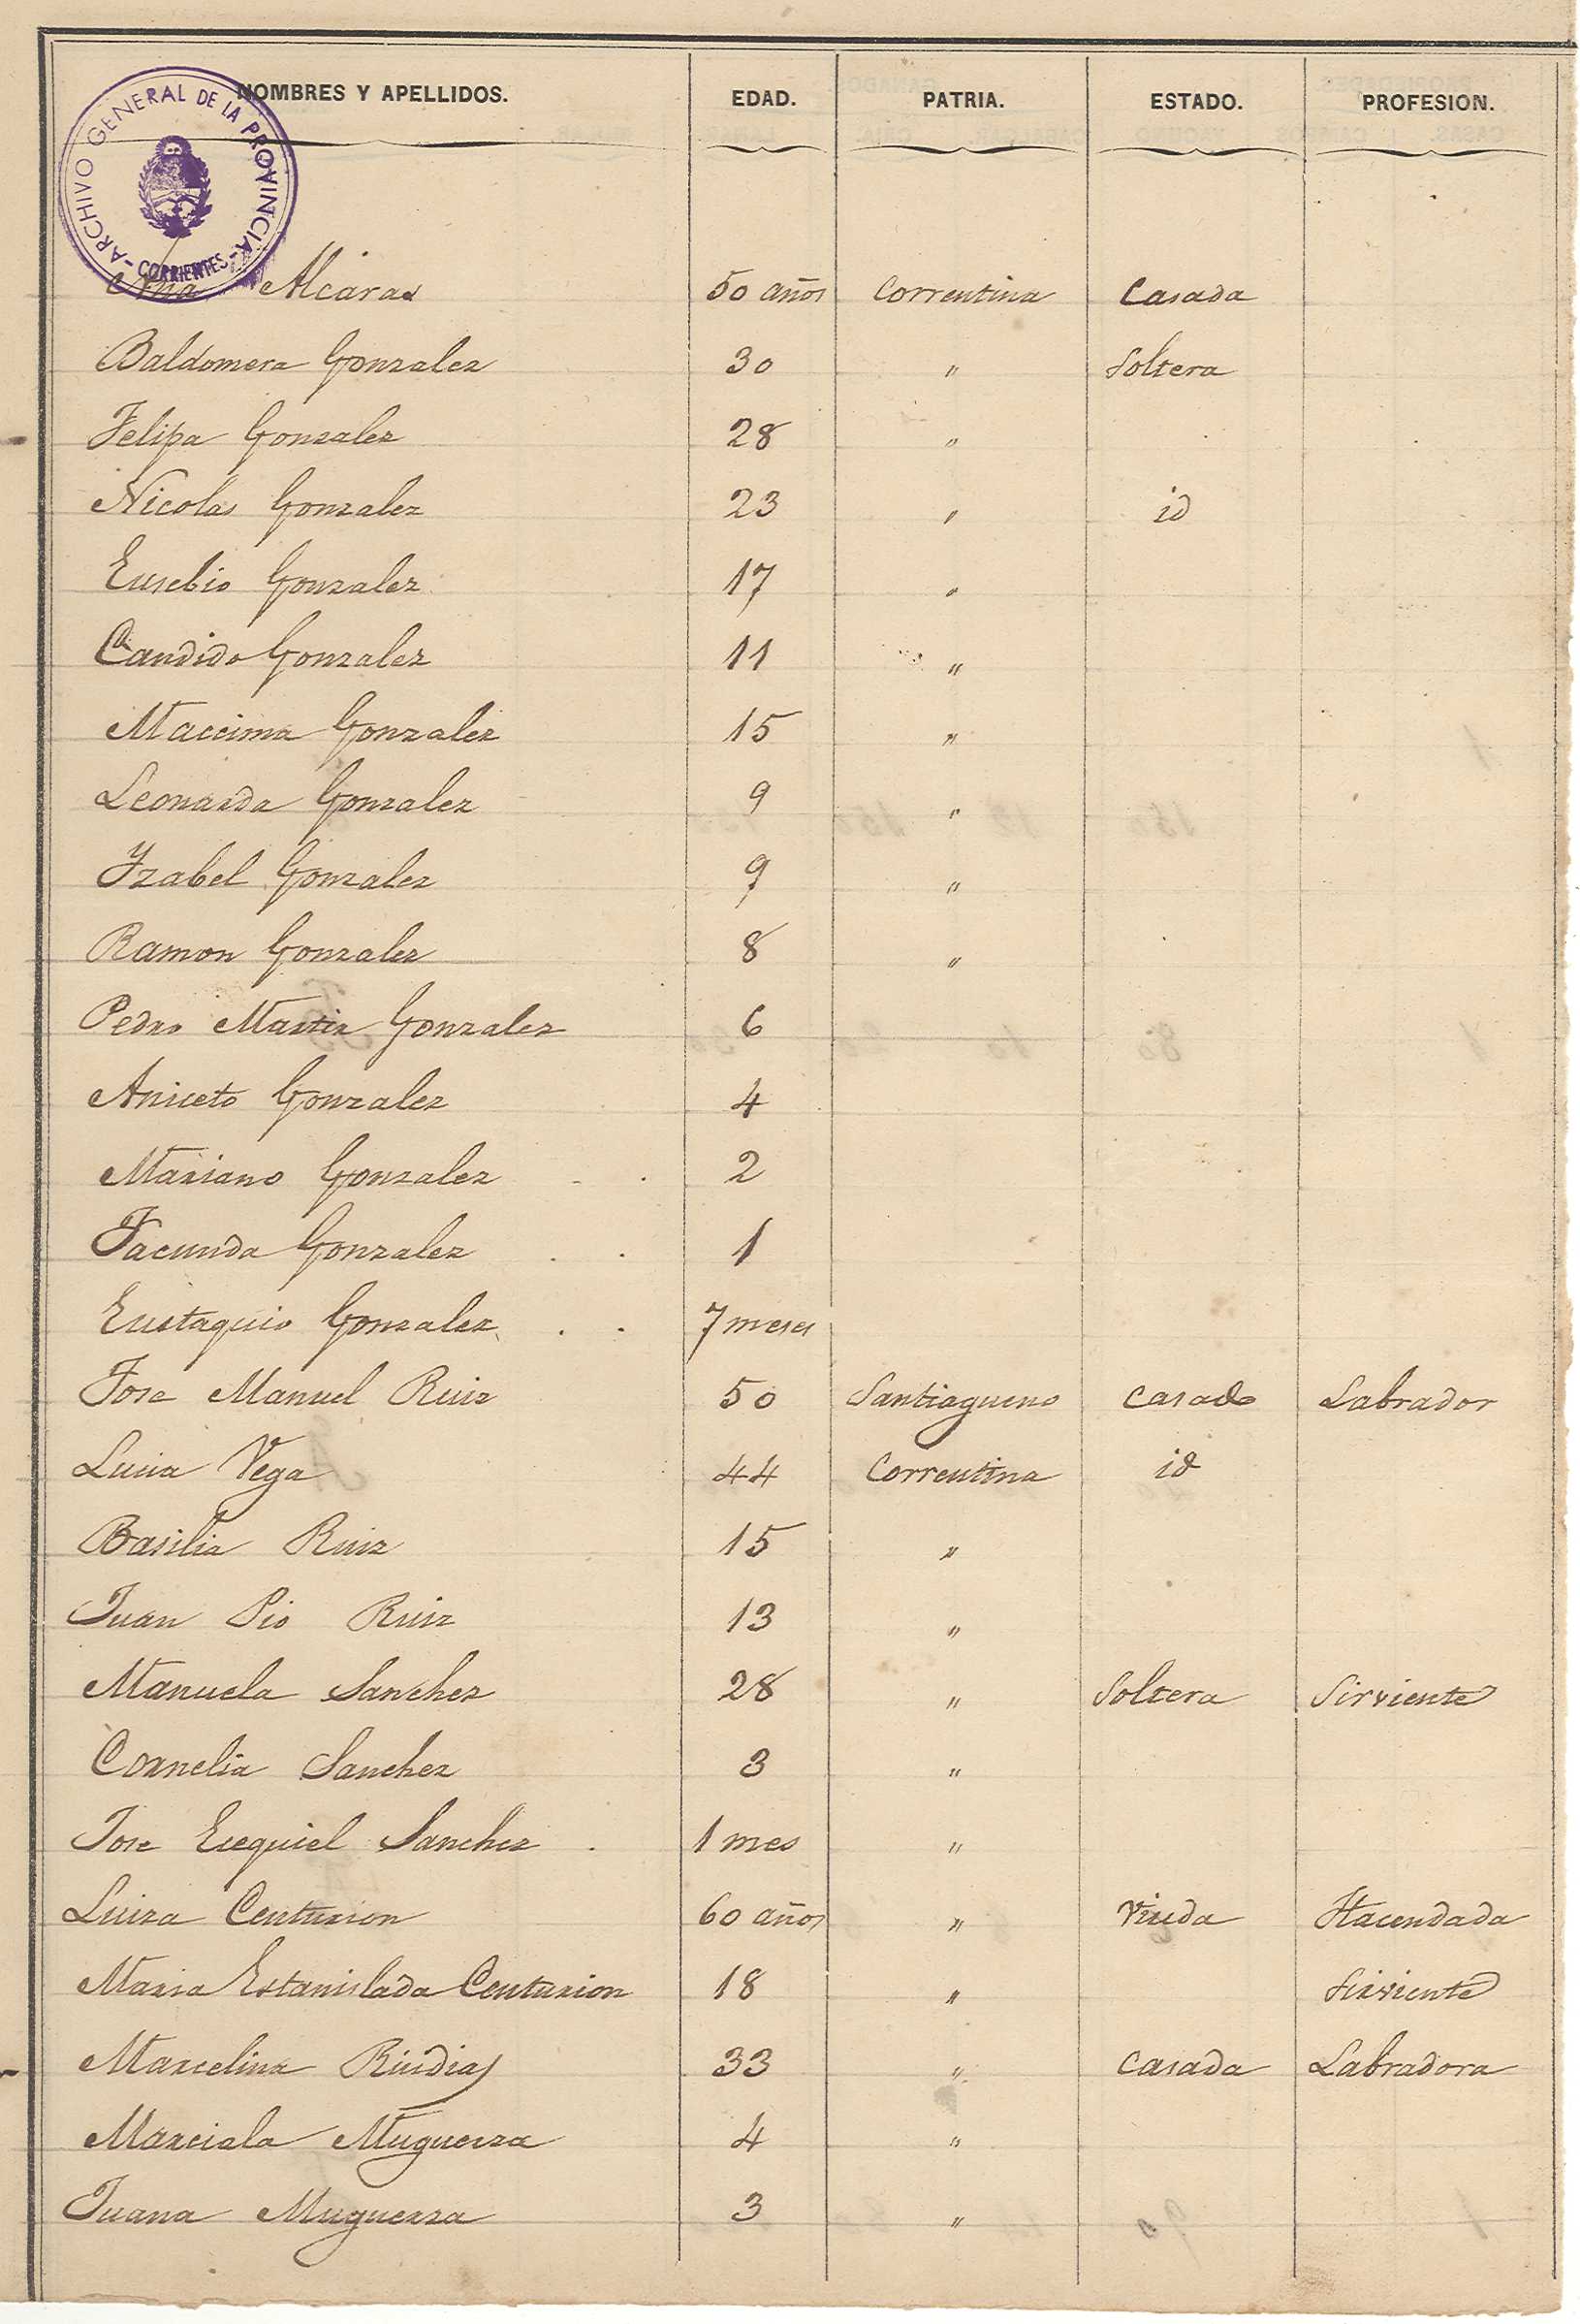 NOMBRES Y APELLIDOS. EDAD. PATRIA. ESTADO. PROFESION.
ARCHIVO GENERAL DE LA PROVINCIA - CORRIENTES -
Ana Alcaras 50 años Correntina Casada
Baldomera Gonzalez 30 " Soltera
Felipa Gonzalez 28 "
Nicolas Gonzalez 23 " id
Eusebio Gonzalez 17 "
Candido Gonzalez 11 "
Maccima Gonzalez 15 "
Leonarda Gonzalez 9 "
Yzabel Gonzalez 9 "
Ramon Gonzalez 8 "
Pedro Martin Gonzalez 6
Aniceto Gonzalez 4
Mariano Gonzalez 2
Facunda Gonzalez 1
Eustaquio Gonzalez 7 meses
Jose Manuel Ruiz 50 Santiagueno Casado Labrador
Lucia Vega 44 Correntina id
Basilia Ruiz 15 "
Juan Pio Ruiz 13 "
Manuela Sanchez 28 " Soltera Sirviente
Cornelia Sanchez 3 "
Jose Esequiel Sanchez 1 mes "
Luiza Centurion 60 años " Viuda Hacendada
Maria Estanislada Centurion 18 " Sirviente
Marcelina Riudias 33 " Casada Labradora
Marciala Muguerza 4 "
Juana Muguerza 3 "